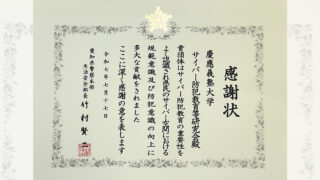 感謝状
慶應義塾大学
サイバー防犯教育等研究会殿
貴団体はサイバー防犯教育の重要性を
よく認識され県民のサイバー空間における
規範意識及び防犯意識の向上に
多大な貢献をされました
ここに深く感謝の意を表します
令和七年七月十七日
愛知県警察本部
生活安全部長
竹村賢一